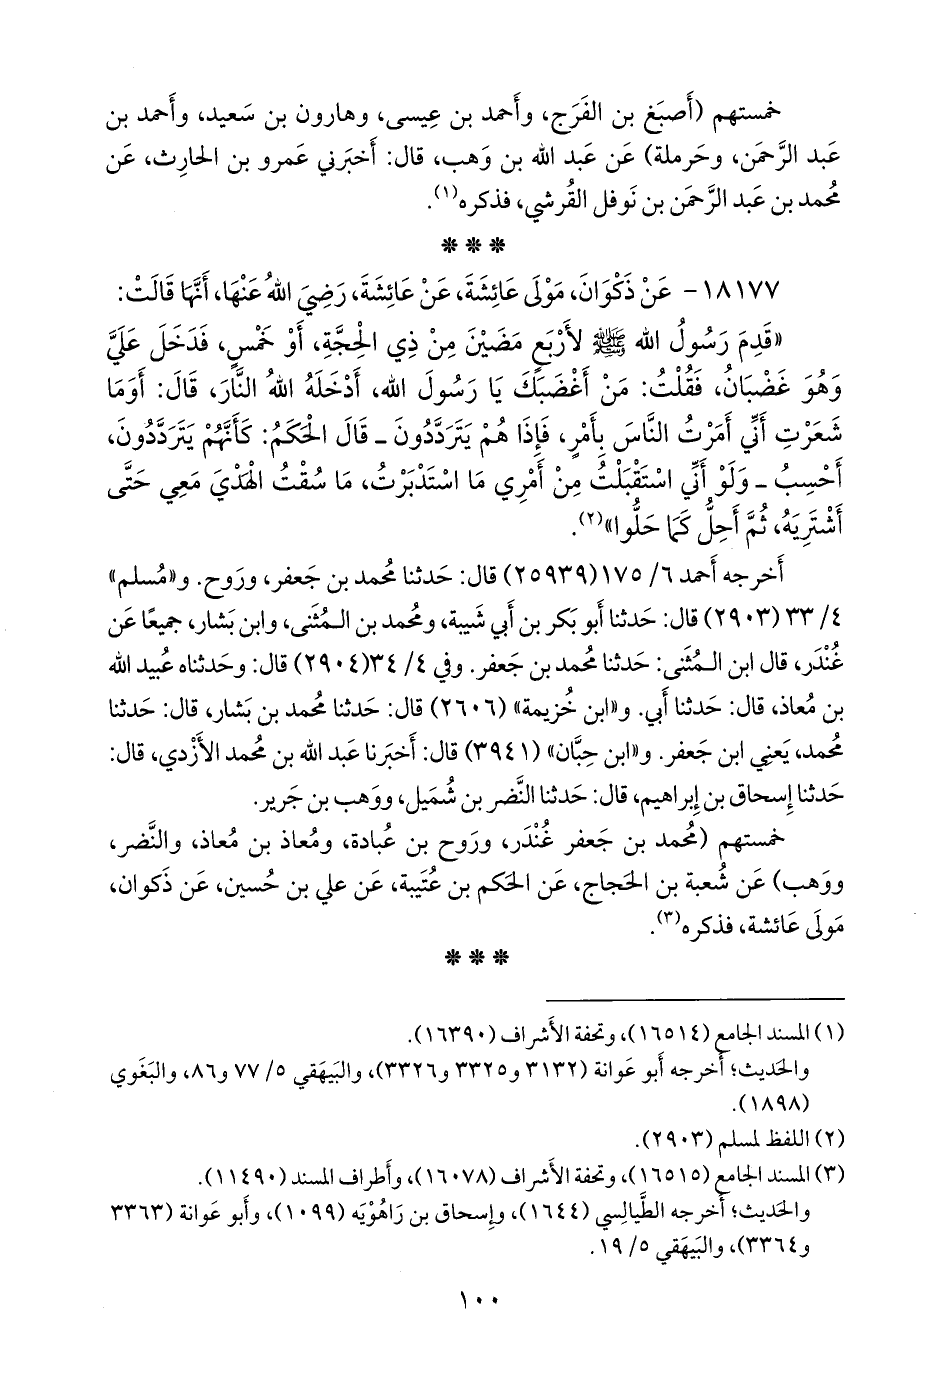 خمستهم (أَصبَغ بن الفَرَج، وأَحمد بن عِيسى، وهارون بن سَعيد، وأَحمد بن
عَبد الرَّحمَن، وحَرملة) عَن عَبد الله بن وَهب، قال: أَخبَرني عَمرو بن الحارِث، عَن
مُحمد بن عَبد الرَّحمَن بن نَوفل القُرشي، فذكره(١).
***
١٨١٧٧ - عَنْ ذَكْوَانَ، مَوْلَى عَائِشَةَ، عَنْ عَائِشَةَ، رَضِيَ اللهُ عَنْهَا، أَنَّهَا قَالَتْ:
«قَدِمَ رَسُولُ الله ﷺ لأَرْبَعٍ مَضَيْنَ مِنْ ذِي الْحِجَّةِ، أَوْ خَمْسٍ، فَدَخَلَ عَلَيَّ
وَهُوَ غَضْبَانُ، فَقُلْتُ: مَنْ أَغْضَبَكَ يَا رَسُولَ الله، أَدْخَلَهُ اللهُ النَّارَ، قَالَ: أَوَمَا
شَعَرْتِ أَنِّي أَمَرْتُ النَّاسَ بِأَمْرٍ، فَإِذَا هُمْ يَتَرَدَّدُونَ ـ قَالَ الْحَكَمُ: كَأَنَّهُمْ يَتَرَدَّدُونَ،
أَحْسِبُ ـ وَلَوْ أَنِّي اسْتَقْبَلْتُ مِنْ أَمْرِي مَا اسْتَدْبَرْتُ، مَا سُقْتُ الْهَدْيَ مَعِي حَتَّى
أَشْتَرِيَهُ، ثُمَّ أَحِلُّ كَمَا حَلُّوا»(٢).
أَخرجه أَحمد ٦/ ١٧٥(٢٥٩٣٩) قال: حَدثنا مُحمد بن جَعفر، ورَوح. و«مُسلم»
٤/ ٣٣ (٢٩٠٣) قال: حَدثنا أَبو بَكر بن أَبي شَيبة، ومُحمد بن الـمُثَنى، وابن بَشار، جميعًا عَن
غُنْدَر، قال ابن الـمُثَنى: حَدثنا مُحمد بن جَعفر. وفي ٤/ ٣٤(٢٩٠٤) قال: وحَدثناه عُبيد الله
بن مُعاذ، قال: حَدثنا أَبي. و«ابن خُزيمة» (٢٦٠٦) قال: حَدثنا مُحمد بن بَشار، قال: حَدثنا
مُحمد، يَعنِي ابن جَعفر. و«ابن حِبَّان» (٣٩٤١) قال: أَخبَرنا عَبد الله بن مُحمد الأَزْدي، قال:
حَدثنا إِسحاق بن إِبراهيم، قال: حَدثنا النَّضر بن شُمَيل، ووَهب بن جَرير.
خمستهم (مُحمد بن جَعفر غُنْدَر، ورَوح بن عُبادة، ومُعاذ بن مُعاذ، والنَّضر،
ووَهب) عَن شُعبة بن الحَجاج، عَن الحَكم بن عُتَيبة، عَن علي بن حُسين، عَن ذَكوان،
مَولَى عَائشة، فذكره(٣).
***
(١) المسند الجامع (١٦٥١٤)، وتحفة الأَشراف (١٦٣٩٠).
والحَديث؛ أَخرجه أَبو عَوانة (٣١٣٢ و٣٣٢٥ و٣٣٢٦)، والبَيهَقي ٥/ ٧٧ و٨٦، والبَغَوي
(١٨٩٨).
(٢) اللفظ لمسلم (٢٩٠٣).
(٣) المسند الجامع (١٦٥١٥)، وتحفة الأَشراف (١٦٠٧٨)، وأَطراف المسند (١١٤٩٠).
والحَديث؛ أَخرجه الطَّيالِسي (١٦٤٤)، وإِسحاق بن رَاهُوْيَه (١٠٩٩)، وأَبو عَوانة (٣٣٦٣
و٣٣٦٤)، والبَيهَقي ٥/ ١٩.
١٠٠